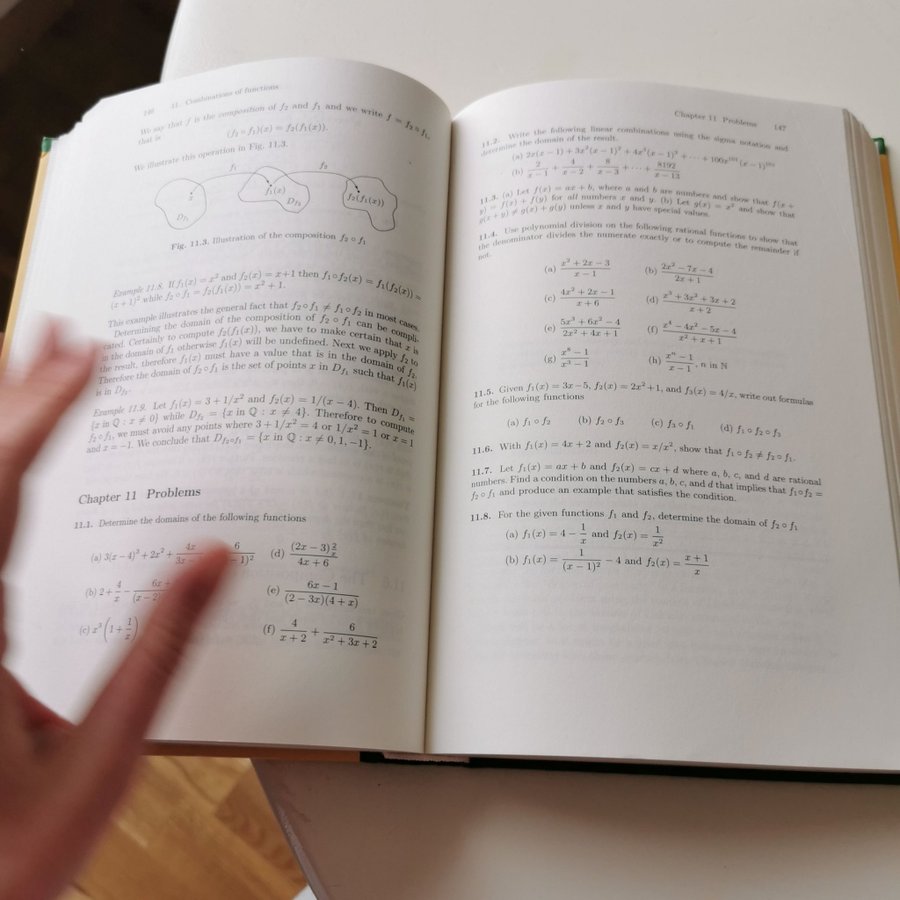 146 11. Combinations of functions
We say that f is the composition of f₂ and f₁ and we write f = f₂ ∘ f₁,
that is
(f₂ ∘ f₁)(x) = f₂(f₁(x)).
We illustrate this operation in Fig. 11.3.
f₁ f₂
x f₁(x) f₂(f₁(x))
D_{f₁} D_{f₂}
Fig. 11.3. Illustration of the composition f₂ ∘ f₁
Example 11.8. If f₁(x) = x² and f₂(x) = x+1 then f₁∘f₂(x) = f₁(f₂(x)) =
(x + 1)² while f₂ ∘ f₁ = f₂(f₁(x)) = x² + 1.
This example illustrates the general fact that f₂∘f₁ ≠ f₁∘f₂ in most cases.
Determining the domain of the composition of f₂ ∘ f₁ can be compli-
cated. Certainly to compute f₂(f₁(x)), we have to make certain that x is
in the domain of f₁ otherwise f₁(x) will be undefined. Next we apply f₂ to
the result, therefore f₁(x) must have a value that is in the domain of f₂.
Therefore the domain of f₂∘f₁ is the set of points x in D_{f₁} such that f₁(x)
is in D_{f₂}.
Example 11.9. Let f₁(x) = 3 + 1/x² and f₂(x) = 1/(x − 4). Then D_{f₁} =
{x in ℚ : x ≠ 0} while D_{f₂} = {x in ℚ : x ≠ 4}. Therefore to compute
f₂∘f₁, we must avoid any points where 3 + 1/x² = 4 or 1/x² = 1 or x = 1
and x = −1. We conclude that D_{f₂∘f₁} = {x in ℚ : x ≠ 0, 1, −1}.
Chapter 11 Problems
11.1. Determine the domains of the following functions
(a) 3(x − 4)³ + 2x² + 4x/3x 6/ − 1)² (d) (2x − 3)2/x / 4x + 6
(b) 2 + 4/x − 6x+/(x − 2) (e) 6x − 1 / (2 − 3x)(4 + x)
(c) x³(1 + 1/x) (f) 4/(x + 2) + 6/(x² + 3x + 2)
Chapter 11 Problems 147
11.2. Write the following linear combinations using the sigma notation and
determine the domain of the result.
(a) 2x(x − 1) + 3x²(x − 1)² + 4x³(x − 1)³ + ··· + 100x¹⁰¹(x − 1)¹⁰¹
(b) 2/(x − 1) + 4/(x − 2) + 8/(x − 3) + ··· + 8192/(x − 13)
11.3. (a) Let f(x) = ax + b, where a and b are numbers and show that f(x +
y) = f(x) + f(y) for all numbers x and y. (b) Let g(x) = x² and show that
g(x + y) ≠ g(x) + g(y) unless x and y have special values.
11.4. Use polynomial division on the following rational functions to show that
the denominator divides the numerate exactly or to compute the remainder if
not.
(a) (x² + 2x − 3)/(x − 1) (b) (2x² − 7x − 4)/(2x + 1)
(c) (4x² + 2x − 1)/(x + 6) (d) (x³ + 3x² + 3x + 2)/(x + 2)
(e) (5x³ + 6x² − 4)/(2x² + 4x + 1) (f) (x⁴ − 4x² − 5x − 4)/(x² + x + 1)
(g) (x⁸ − 1)/(x³ − 1) (h) (xⁿ − 1)/(x − 1), n in ℕ
11.5. Given f₁(x) = 3x − 5, f₂(x) = 2x² + 1, and f₃(x) = 4/x, write out formulas
for the following functions
(a) f₁ ∘ f₂ (b) f₂ ∘ f₃ (c) f₃ ∘ f₁ (d) f₁ ∘ f₂ ∘ f₃
11.6. With f₁(x) = 4x + 2 and f₂(x) = x/x², show that f₁ ∘ f₂ ≠ f₂ ∘ f₁.
11.7. Let f₁(x) = ax + b and f₂(x) = cx + d where a, b, c, and d are rational
numbers. Find a condition on the numbers a, b, c, and d that implies that f₁∘f₂ =
f₂ ∘ f₁ and produce an example that satisfies the condition.
11.8. For the given functions f₁ and f₂, determine the domain of f₂ ∘ f₁
(a) f₁(x) = 4 − 1/x and f₂(x) = 1/x²
(b) f₁(x) = 1/(x − 1)² − 4 and f₂(x) = (x + 1)/x